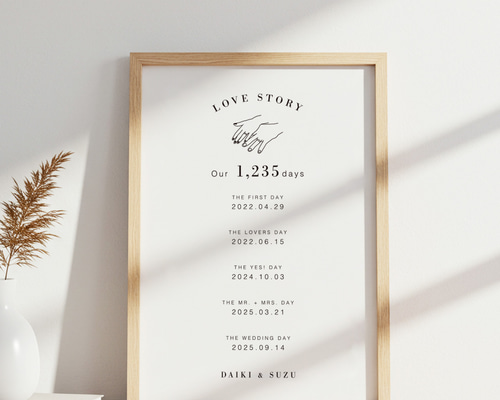 LOVE STORY
Our 1,235days
THE FIRST DAY
2022.04.29
THE LOVERS DAY
2022.06.15
THE YES! DAY
2024.10.03
THE MR. + MRS. DAY
2025.03.21
THE WEDDING DAY
2025.09.14
DAIKI & SUZU